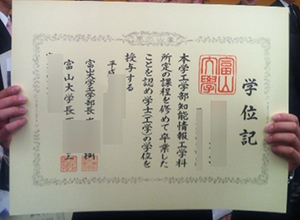 学位記
富山大學
本学工学部知能情報工学科
所定の課程を修めて卒業した
ことを認め学士(工学)の学位を
授与する
平成
富山大学工学部長
富山大学長